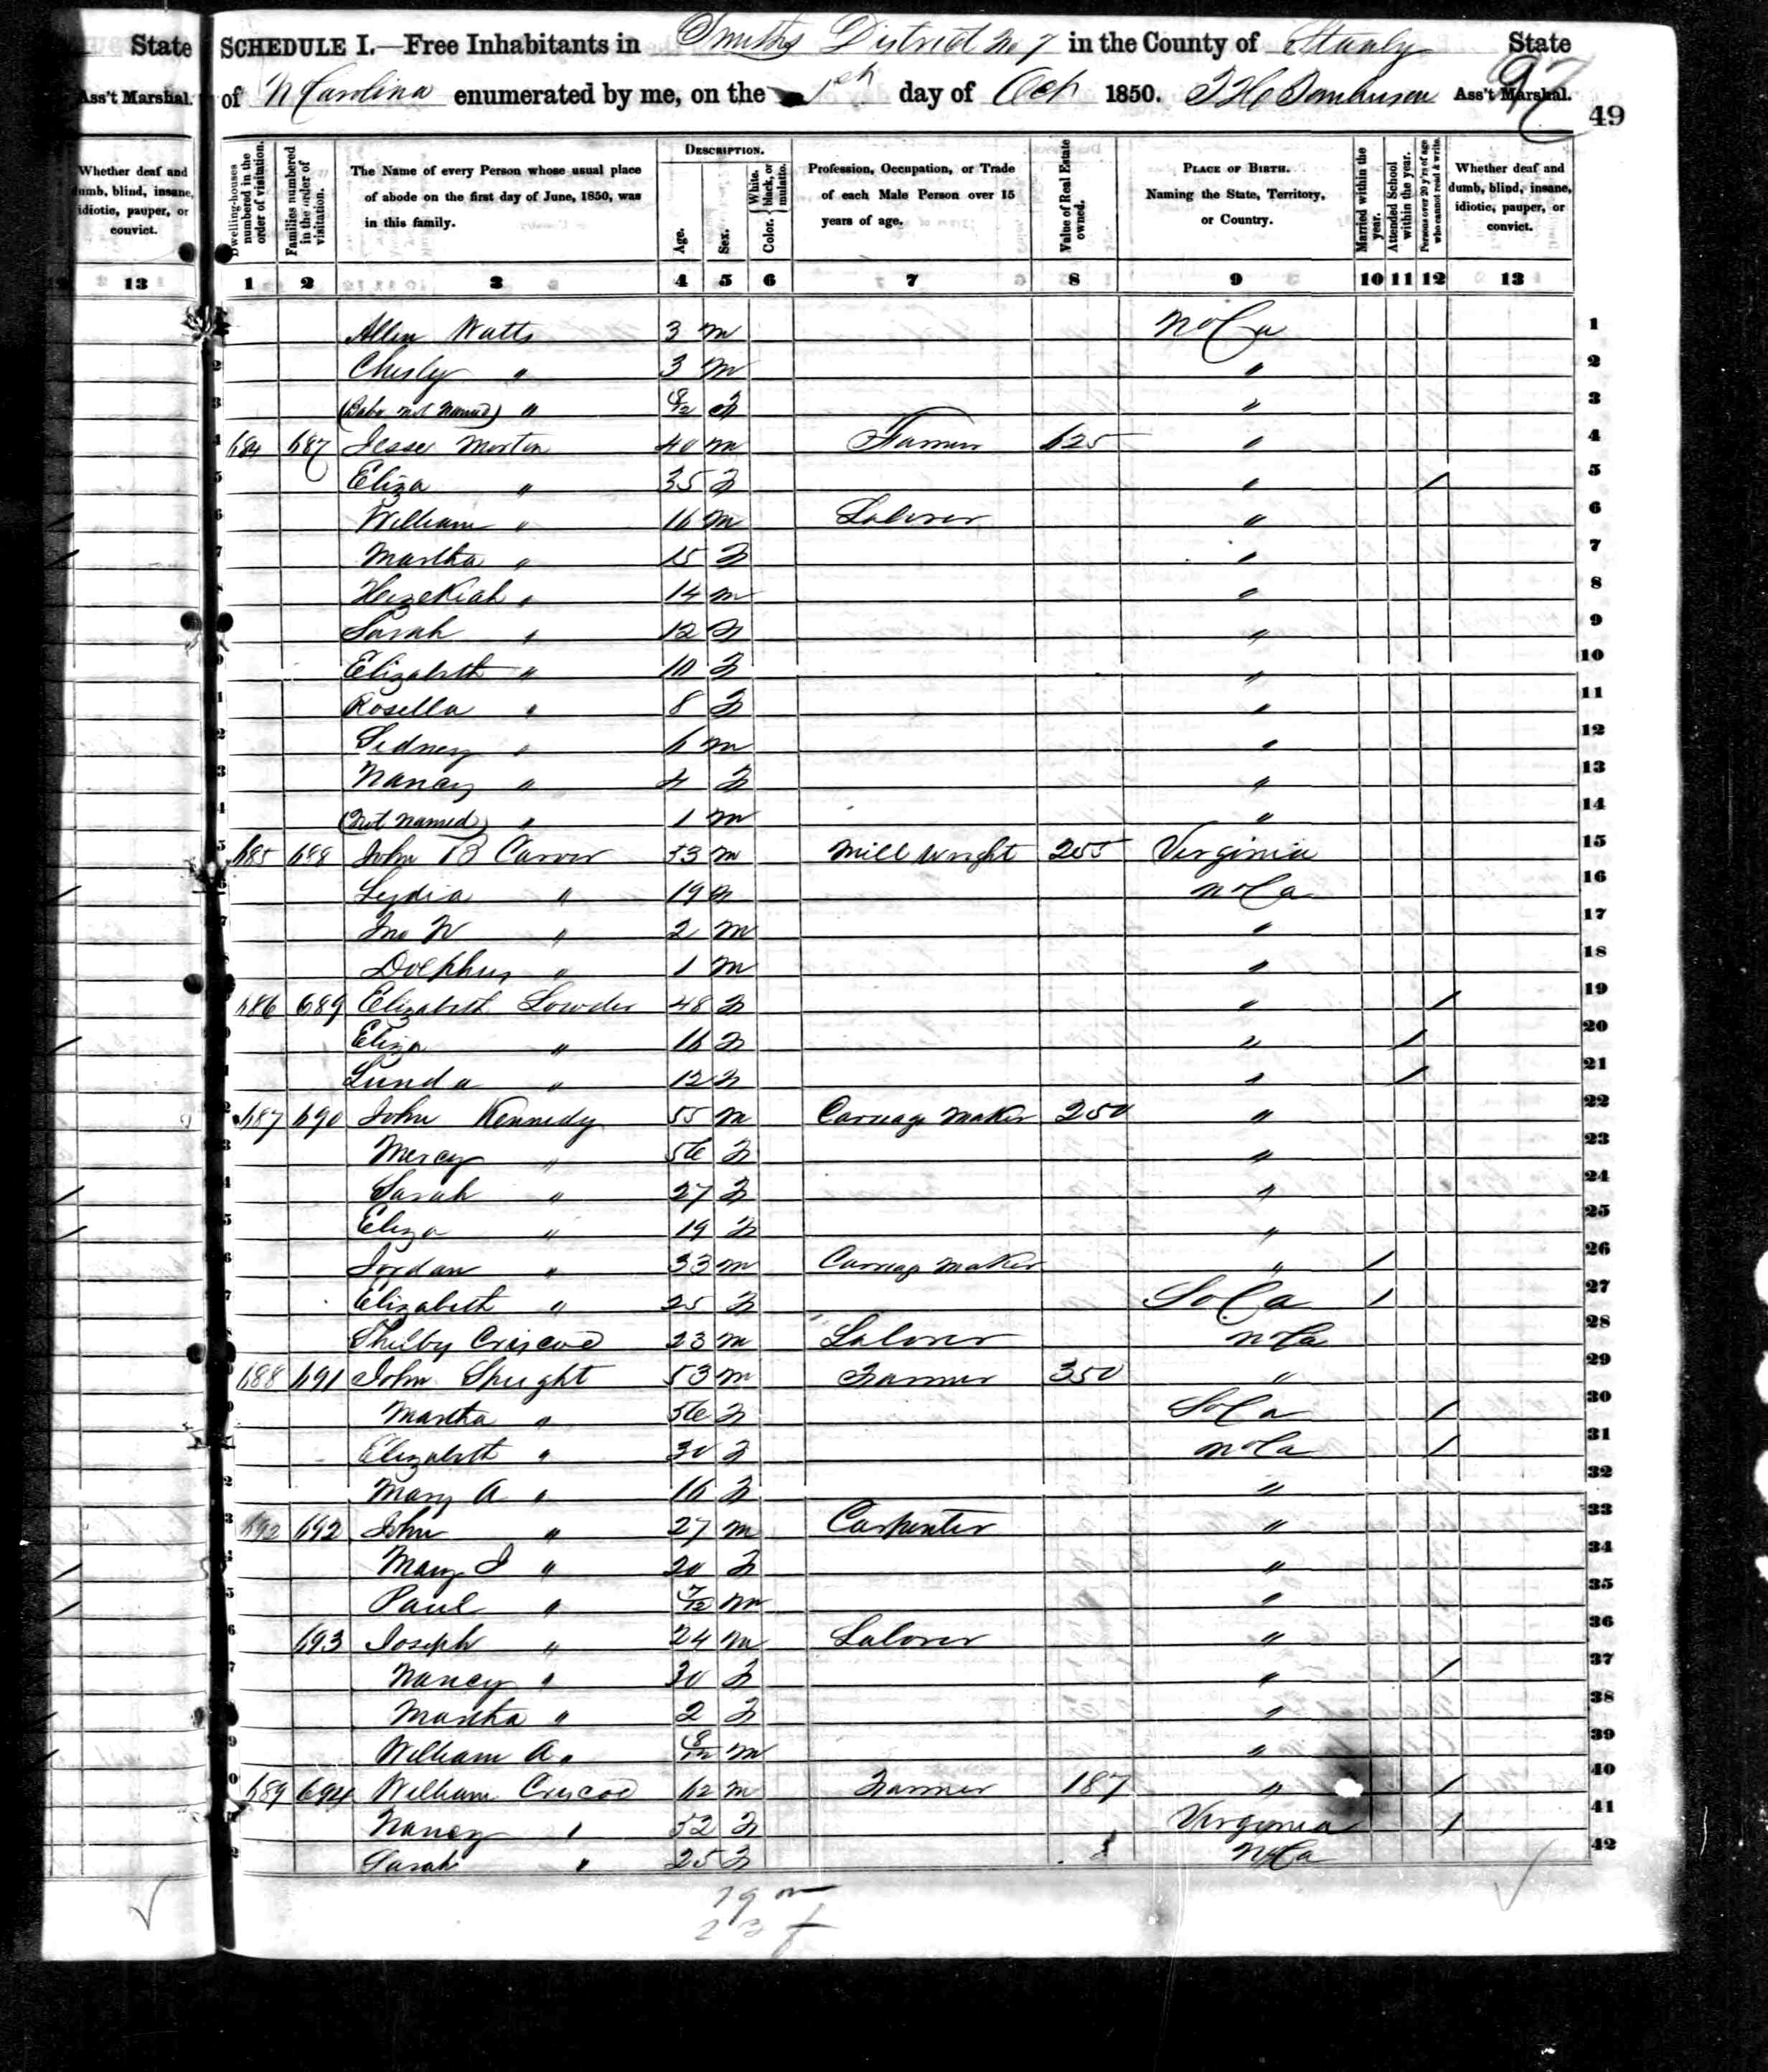 State
Ass't Marshal.
Whether deaf and dumb, blind, insane, idiotic, pauper, or convict.
13
SCHEDULE I.—Free Inhabitants in Smiths District No 7 in the County of Stanly State
of N Carolina enumerated by me, on the 1st day of Oct 1850. Ass't Marshal.
97
49
DESCRIPTION.
Dwelling-houses numbered in the order of visitation. Families numbered in the order of visitation. The Name of every Person whose usual place of abode on the first day of June, 1850, was in this family. Age. Sex. Color. { White, black, or mulatto. Profession, Occupation, or Trade of each Male Person over 15 years of age. Value of Real Estate owned. PLACE OF BIRTH. Naming the State, Territory, or Country. Married within the year. Attended School within the year. Persons over 20 y'rs of age who cannot read & write. Whether deaf and dumb, blind, insane, idiotic, pauper, or convict.
1 2 3 4 5 6 7 8 9 10 11 12 13
Allen Watts 3 m No Ca 1
Chesley " 3 m " 2
(Babe not Named) " 8/12 f " 3
684 687 Jesse Morton 40 m Farmer 625 " 4
Eliza " 35 F " / 5
William " 16 m Laborer " 6
Martha " 15 F " 7
Hezekiah " 14 m " 8
Sarah " 12 F " 9
Elizabeth " 10 F " 10
Rosella " 8 F " 11
Sidney " 6 m " 12
Nancy " 4 F " 13
(Not Named) " 1 m " 14
685 688 John B Carver 53 m Mill Wright 205 Virginia 15
Lydia " 19 F No Ca 16
Jno W " 2 m " 17
Dolphus " 1 m " 18
686 689 Elizabeth Lowder 48 F " / 19
Eliza " 16 F " / 20
Lunda " 12 F " / 21
687 690 John Kennedy 55 m Carriage Maker 250 " 22
Mercy " 56 F " 23
Sarah " 27 F " 24
Eliza " 19 F " 25
Jordan " 33 m Carriage Maker " / 26
Elizabeth " 25 F So Ca / 27
Shelby Criscoe 23 m Laborer No Ca 28
688 691 John Speight 53 m Farmer 350 " 29
Martha " 56 F So Ca / 30
Elizabeth " 30 F No Ca / 31
Mary A " 16 F " 32
692 692 John " 27 m Carpenter " 33
Mary J " 20 F " 34
Paul " 7/12 m " 35
693 Joseph " 24 m Laborer " 36
Nancy " 30 F " / 37
Martha " 2 F " 38
William A " 8/12 m " 39
689 694 William Criscoe 62 m Farmer 187 " / 40
Nancy " 52 F Virginia / 41
Sarah " 25 F No Ca 42
19 m
23 f